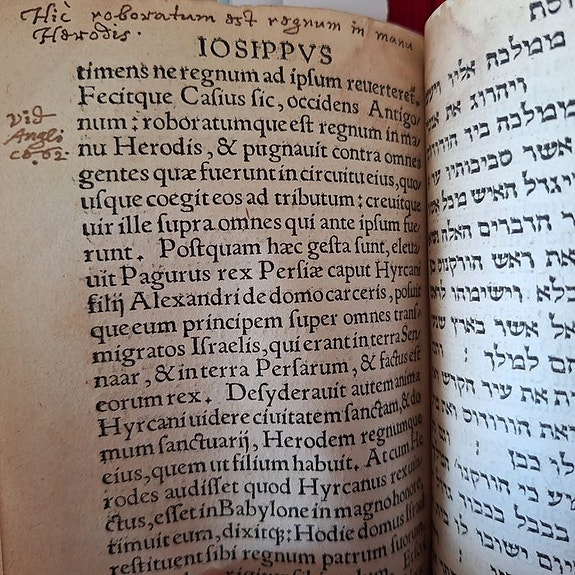 Hic roboratum est regnum in manu
Herodis.
IOSIPPVS
timens ne regnum ad ipsum reuerteret.
Fecitque Casius sic, occidens Antigo/
num : roboratumque est regnum in ma/
nu Herodis, & pugnauit contra omnes
gentes quæ fuerunt in circuitu eius, quo/
usque coegit eos ad tributum : creuitque
uir ille supra omnes qui ante ipsum fue/
runt. Postquam hæc gesta sunt, eleua/
uit Pagurus rex Persiæ caput Hyrcani
filij Alexandri de domo carceris, posuit
que eum principem super omnes trans/
migratos Israelis, qui erant in terra Sen/
naar, & in terra Persarum, & factus est
eorum rex. Desyderauit autem anima
Hyrcani uidere ciuitatem sanctam, & do
mum sanctuarij, Herodem regnumque
eius, quem ut filium habuit. At cum He
rodes audisset quod Hyrcanus rex un
ctus, esset in Babylone in magno honore,
timuit eum, dixitq;: Hodie domus Israel
restituent sibi regnum patrum suorum,
vid
Angli
co. 62.
ממליכה אליו
ויהרוג את
ממולכה ביד
אשר סביבותיו
ויגדל האיש מכל
הדברים האלה
את ראש הורקנוס
כלא וישימהו
אל אשר בארץ
הם למלך :
את עיר הקדש
לו כבן :
בבבל בכבוד